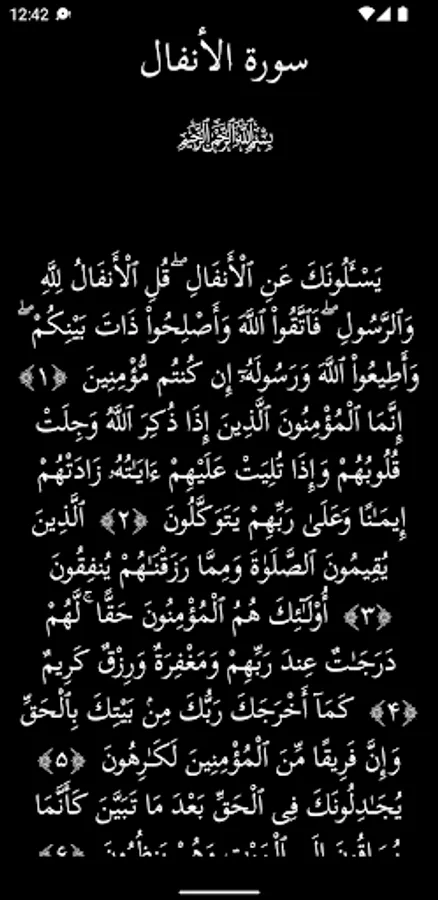 12:42
سورة الأنفال
بِسْمِ ٱللَّهِ ٱلرَّحْمَٰنِ ٱلرَّحِيمِ
يَسْـَٔلُونَكَ عَنِ ٱلْأَنفَالِ ۖ قُلِ ٱلْأَنفَالُ لِلَّهِ
وَٱلرَّسُولِ ۖ فَٱتَّقُوا۟ ٱللَّهَ وَأَصْلِحُوا۟ ذَاتَ بَيْنِكُمْ ۖ
وَأَطِيعُوا۟ ٱللَّهَ وَرَسُولَهُۥٓ إِن كُنتُم مُّؤْمِنِينَ ﴿١﴾
إِنَّمَا ٱلْمُؤْمِنُونَ ٱلَّذِينَ إِذَا ذُكِرَ ٱللَّهُ وَجِلَتْ
قُلُوبُهُمْ وَإِذَا تُلِيَتْ عَلَيْهِمْ ءَايَـٰتُهُۥ زَادَتْهُمْ
إِيمَـٰنًا وَعَلَىٰ رَبِّهِمْ يَتَوَكَّلُونَ ﴿٢﴾ ٱلَّذِينَ
يُقِيمُونَ ٱلصَّلَوٰةَ وَمِمَّا رَزَقْنَـٰهُمْ يُنفِقُونَ
﴿٣﴾ أُو۟لَـٰٓئِكَ هُمُ ٱلْمُؤْمِنُونَ حَقًّا ۚ لَّهُمْ
دَرَجَـٰتٌ عِندَ رَبِّهِمْ وَمَغْفِرَةٌ وَرِزْقٌ كَرِيمٌ
﴿۴﴾ كَمَآ أَخْرَجَكَ رَبُّكَ مِنۢ بَيْتِكَ بِٱلْحَقِّ
وَإِنَّ فَرِيقًا مِّنَ ٱلْمُؤْمِنِينَ لَكَـٰرِهُونَ ﴿۵﴾
يُجَـٰدِلُونَكَ فِى ٱلْحَقِّ بَعْدَ مَا تَبَيَّنَ كَأَنَّمَا
يُسَاقُونَ إِلَى ٱلْمَوْتِ وَهُمْ يَنظُرُونَ ﴿۶﴾